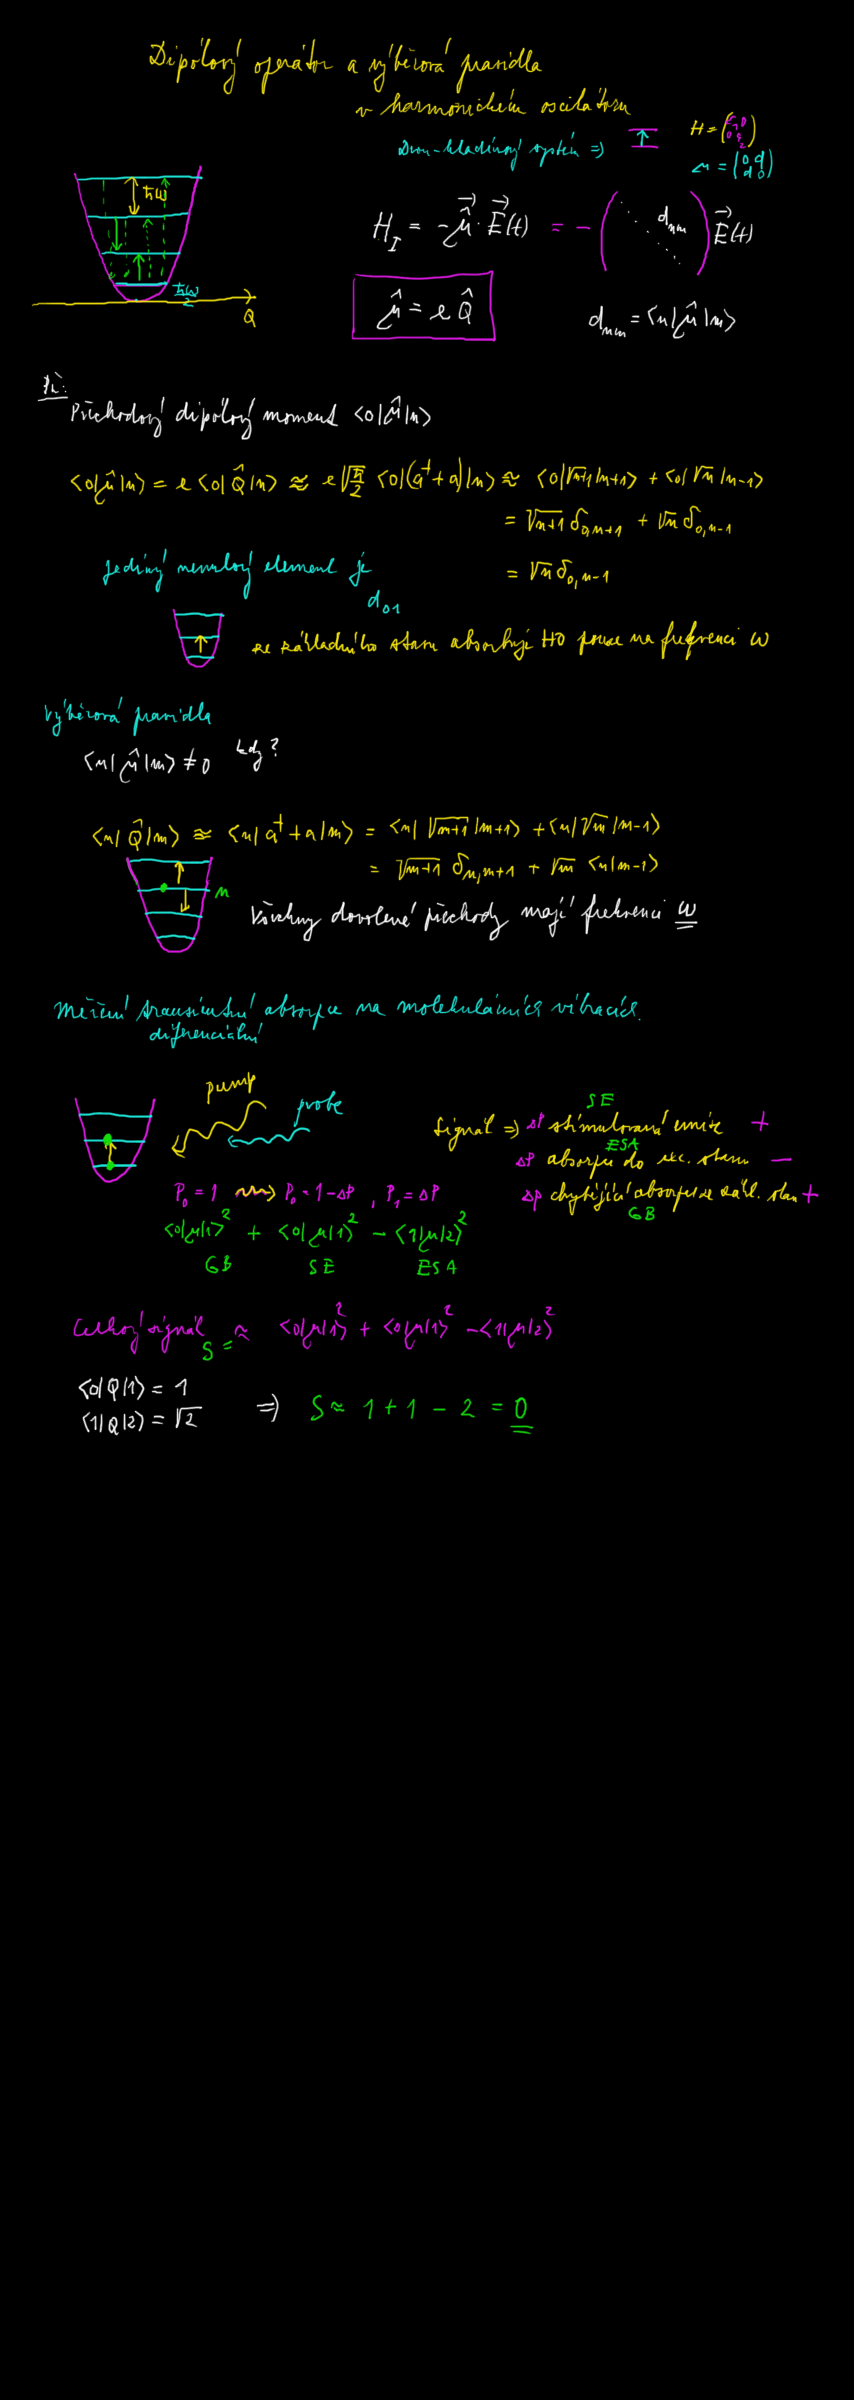 Dipólový operátor a výběrová pravidla
v harmonickém oscilátoru
Dvou-hladinový systém ⇒
H = (
μ = (0 d
d 0)
ħω
ħω/2
Q
H_I = -μ̂⃗·E⃗(t) = - ( d_nm ) E⃗(t)
μ̂ = e Q̂
d_nm = <n|μ̂|m>
Př.:
Přechodový dipólový moment <0|μ̂|n>
<0|μ̂|n> = e <0|Q̂|n> ≈ e √ħ/2 <0|(a† + a)|n> ≈ <0|√n+1|n+1> + <0|√n|n-1>
= √n+1 δ_0,n+1 + √n δ_0,n-1
= √n δ_0,n-1
jediný nenulový element je
d_01
ze základního stavu absorbuje HO pouze na frekvenci ω
Výběrová pravidla
<n|μ̂|m> ≠ 0 kdy?
<n|Q̂|m> ≈ <n|a† + a|m> = <n|√m+1|m+1> + <n|√m|m-1>
= √m+1 δ_n,m+1 + √m <n|m-1>
n
Všechny dovolené přechody mají frekvenci ω
Měření transientní absorpce na molekulárních vibracích.
diferenciální
pump
probe
SE
Signál ⇒ ΔP stimulovaná emise +
ESA
ΔP absorpce do exc. stavu −
ΔP chybějící absorpce ze zákl. stavu +
GB
P₀ = 1 ⟿ P₀ = 1-ΔP , P₁ = ΔP
<0|μ|1>² + <0|μ|1>² − <1|μ|2>²
GB SE ESA
Celkový signál ≈ <0|μ|1>² + <0|μ|1>² − <1|μ|2>²
S =
<0|Q|1> = 1
<1|Q|2> = √2
⇒ S ≈ 1 + 1 − 2 = 0